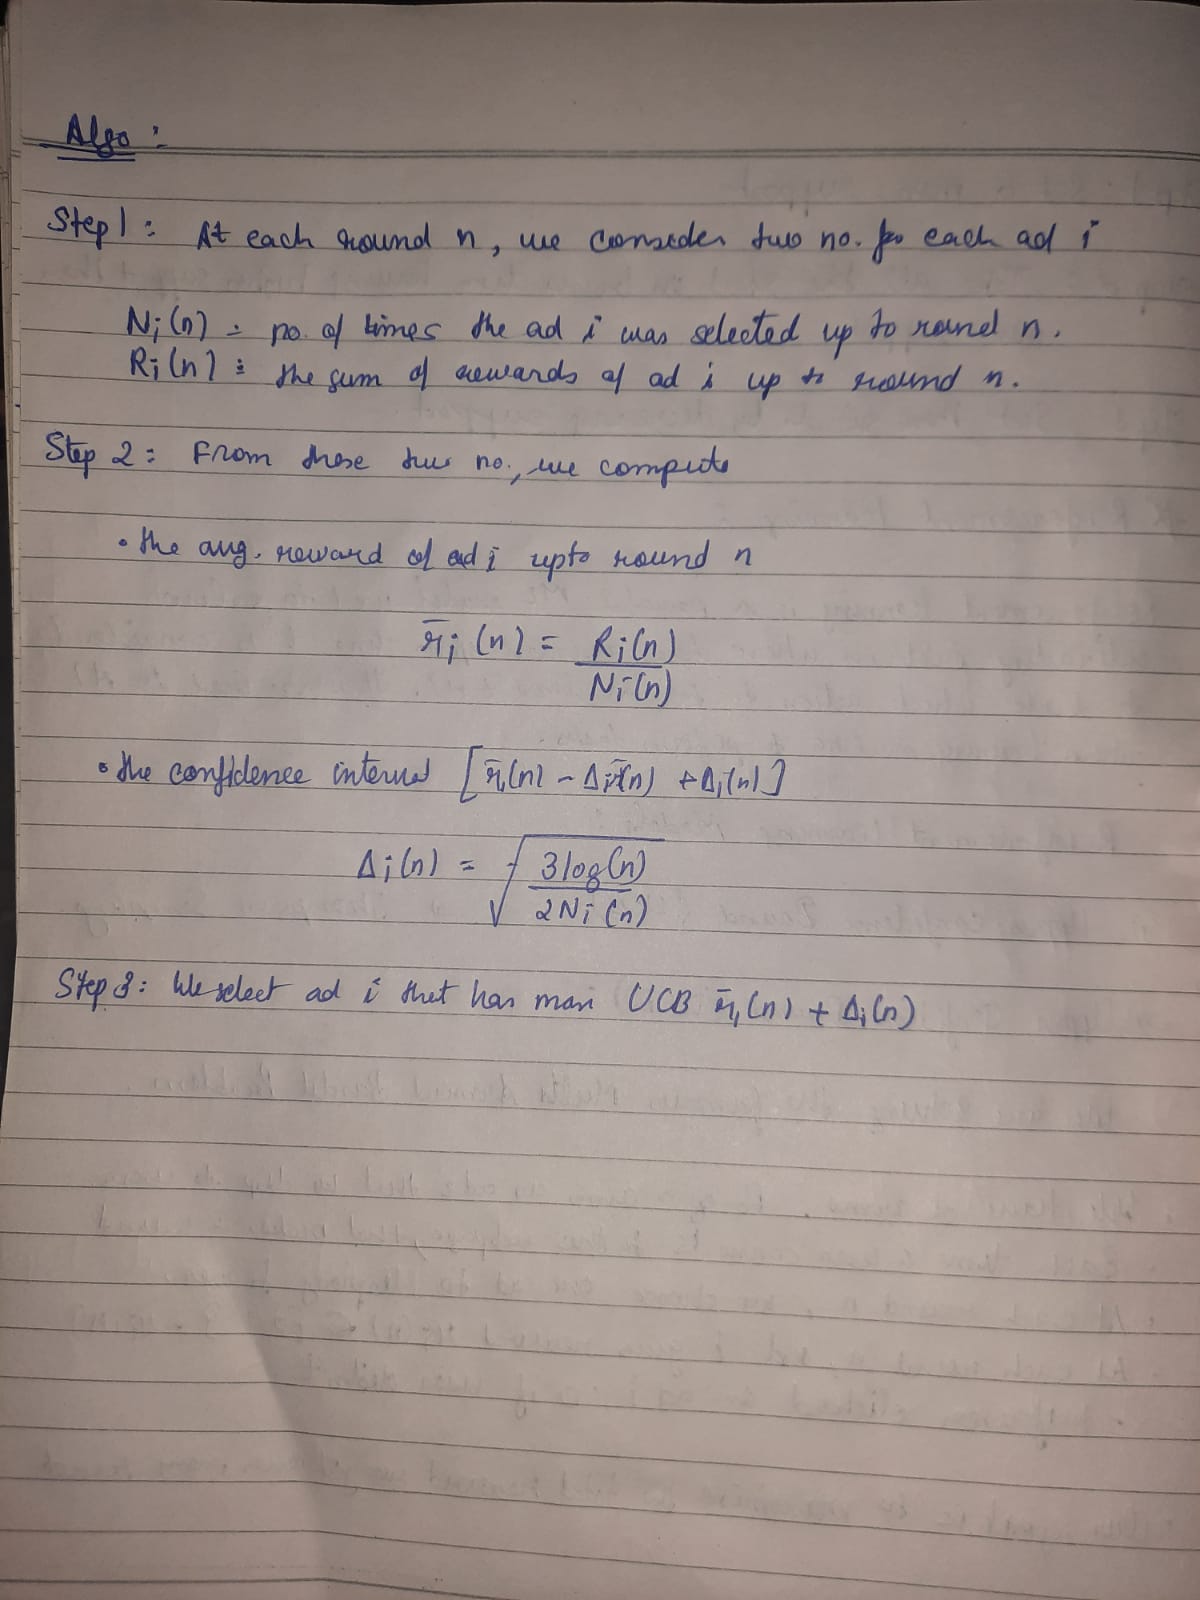 Algo :
Step 1 : At each round n, we consider two no. for each ad i
Ni(n) : no. of times the ad i was selected up to round n.
Ri(n) : the sum of rewards of ad i up to round n.
Step 2 : From these two no., we compute
• the avg. reward of ad i upto round n
r̄i(n) = Ri(n) / Ni(n)
• the confidence interval [r̄i(n) - Δi(n) + Δi(n)]
Δi(n) = √(3log(n) / 2Ni(n))
Step 3 : We select ad i that has max UCB r̄i(n) + Δi(n)